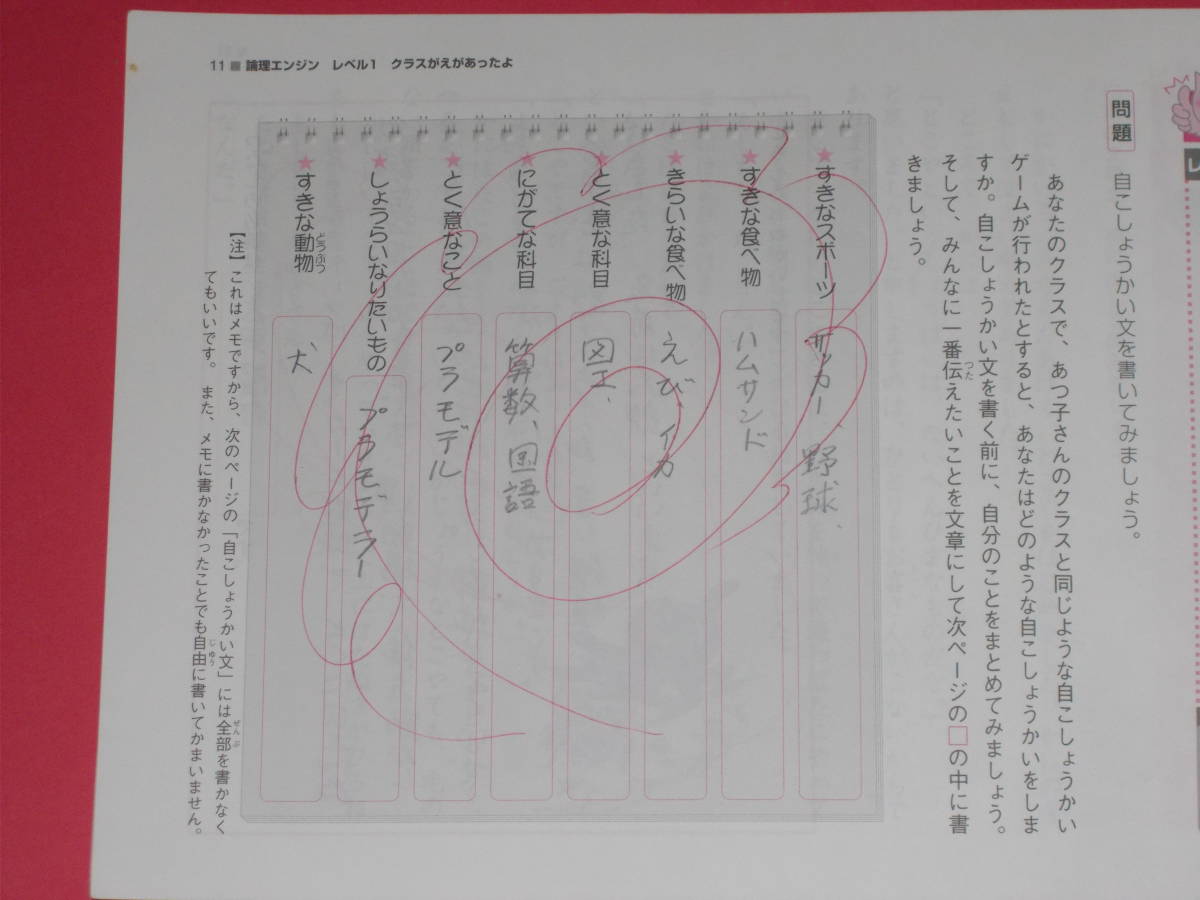 11 ■ 論理エンジン　レベル1　クラスがえがあったよ
レ
問題
自こしょうかい文を書いてみましょう。
あなたのクラスで、あつ子さんのクラスと同じような自こしょうかい
ゲームが行われたとすると、あなたはどのような自こしょうかいをしま
すか。自こしょうかい文を書く前に、自分のことをまとめてみましょう。
そして、みんなに一番伝えたいことを文章にして次ページの□の中に書
つた
きましょう。
★すきなスポーツ
サッカー、野球、
★すきな食べ物
ハムサンド
★きらいな食べ物
えび、イカ
★とく意な科目
図工、
★にがてな科目
算数、国語
★とく意なこと
プラモデル
★しょうらいなりたいもの
プラモデラー
★すきな動物
どうぶつ
犬
【注】これはメモですから、次のページの「自こしょうかい文」には全部を書かなく
ぜんぶ
てもいいです。また、メモに書かなかったことでも自由に書いてかまいません。
じゆう